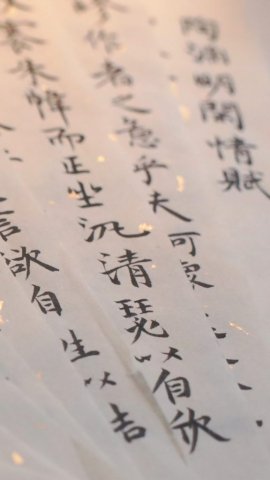 陶渊明閑情賦
作者之意乎夫可
褰朱幃而正坐泛清瑟以自欣
言欲自
生以吉